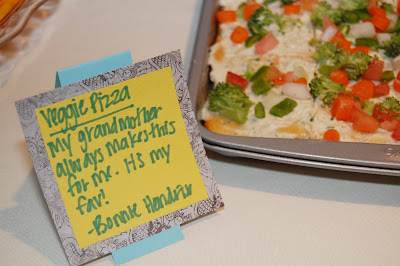 Veggie Pizza
My grandmother
always makes this
for me. It's my
fav!
-Bonnie Hendrix